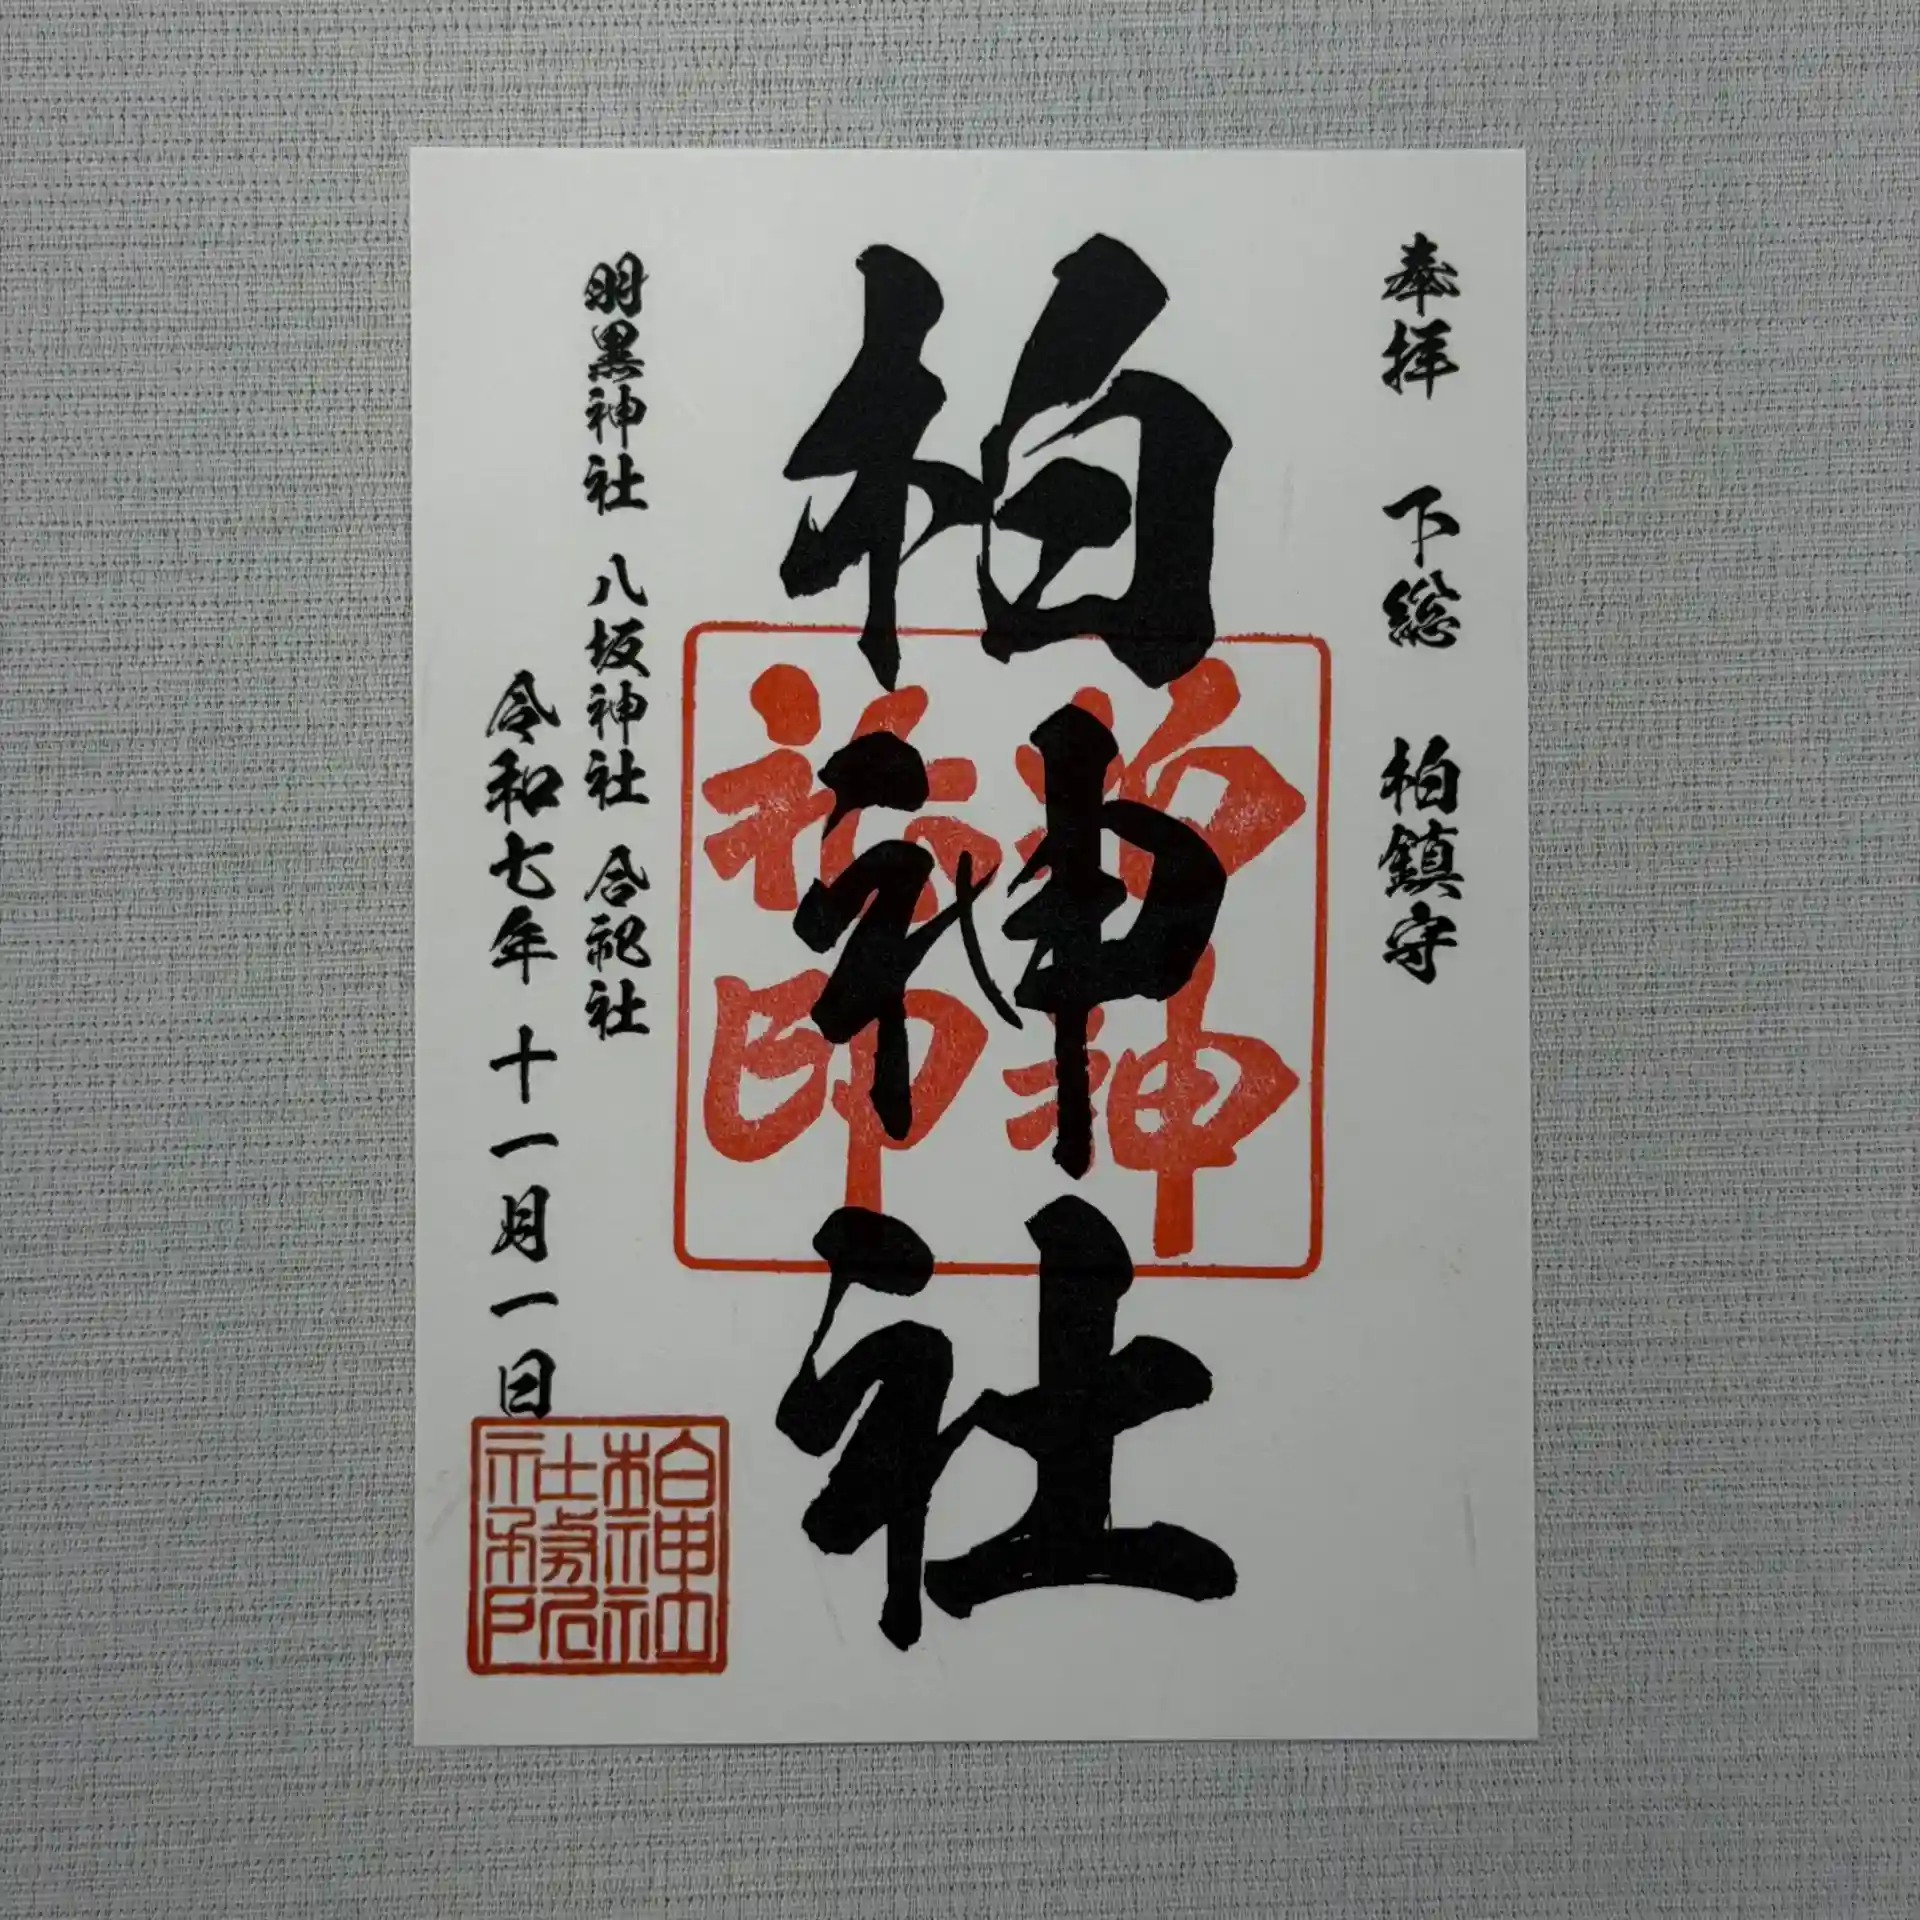 奉拝 下総 柏鎮守
柏神社
柏神社印
羽黒神社 八坂神社 合祀社
令和七年 十一月一日
柏神社
社務所